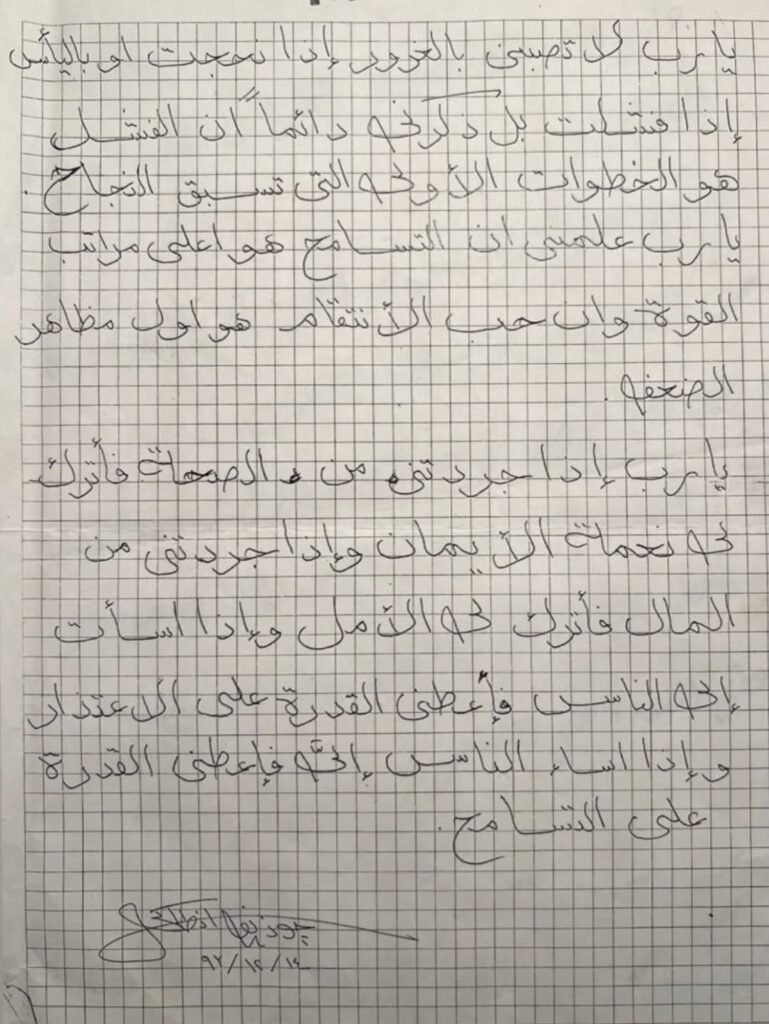 يا رب لا تصبني بالغرور إذا نجحت او باليأس
إذا فشلت بل ذكرني دائماً أن الفشل
هو الخطوات الأولى التي تسبق النجاح.
يا رب علمني ان التسامح هو اعلى مراتب
القوة وان حب الأنتقام هو اول مظاهر
الضعف.
يا رب إذا جردتني من الصحة فأترك
لي نعمة الأيمان وإذا جردتني من
المال فأترك لي الأمل وإذا اسأت
إلى الناس فأعطني القدرة على الاعتذار
وإذا اساء الناس إليّ فإعطني القدرة
على التسامح.
جوزيف
٩٢/١٢/١٤